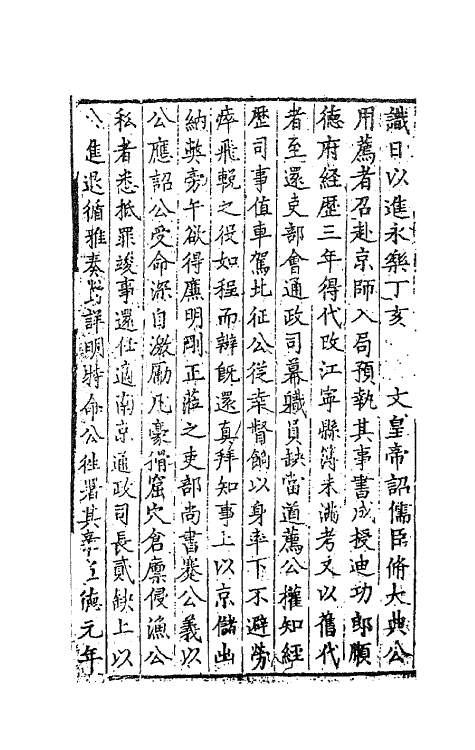 識日以進永樂丁亥　　文皇帝詔儒臣脩大典公
用薦者召赴京師入局預執其事書成授迪功郎順
德府經歷三年得代改江寧縣簿未滿考又以舊代
者至還吏部會通政司幕職員缺當道薦公權知經
歷司事值車駕北征公從葉督餉以身率下不避勞
瘁飛輓之役如程而辦既還真拜知事上以京儲出
納獘旁午欲得廉明剛正蒞之吏部尚書蹇公義以
公應詔公受命深自激勵凡豪猾窟穴倉廩侵漁公
私者悉抵罪竣事還任適南京通政司長貳缺上以
公進退循雅奏對詳明特命公往署其事宣德元年